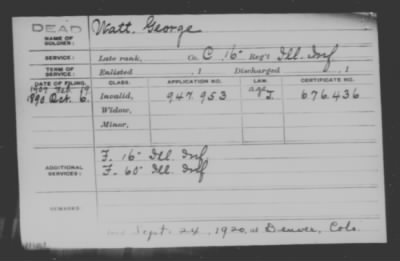 DEAD
NAME OF SOLDIER:
Watt, George
SERVICE:
Late rank, Co. C, 16" Reg't Ill. Inf
TERM OF SERVICE:
Enlisted , 1 Discharged , 1
DATE OF FILING. CLASS. APPLICATION NO. LAW. CERTIFICATE NO.
1907 Feb 19 age
1890 Oct. 6. Invalid, 947.953 J. 676.436
Widow,
Minor,
ADDITIONAL SERVICES:
F. 16" Ill. Inf
F. 60" Ill. Inf
REMARKS:
Sept. 24, 1920, at Denver, Colo.